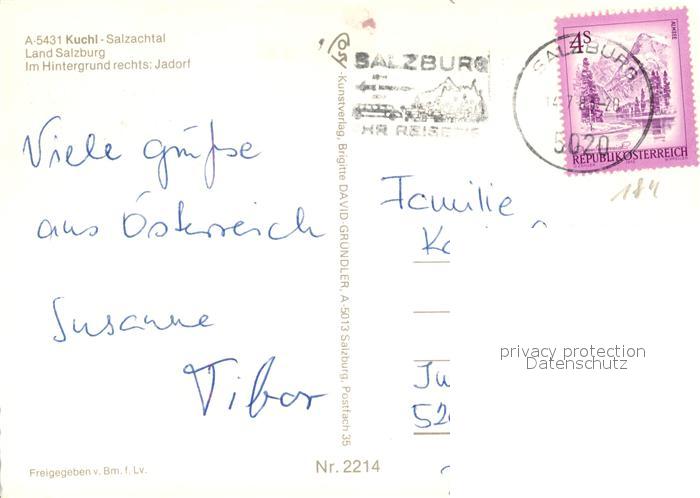 A-5431 Kuchl - Salzachtal
Land Salzburg
Im Hintergrund rechts: Jadorf
Viele Grüße
aus Österreich
Susanne
Tibor
Freigegeben v. Bm. f. Lv.
-Kunstverlag, Brigitte DAVID-GRÜNDLER, A-5013 Salzburg, Postfach 35
Nr. 2214
SALZBURG
SALZBURG
5020
4S
ALMSEE
REPUBLIK ÖSTERREICH
184
Familie
K
Ju
52
privacy protection
Datenschutz